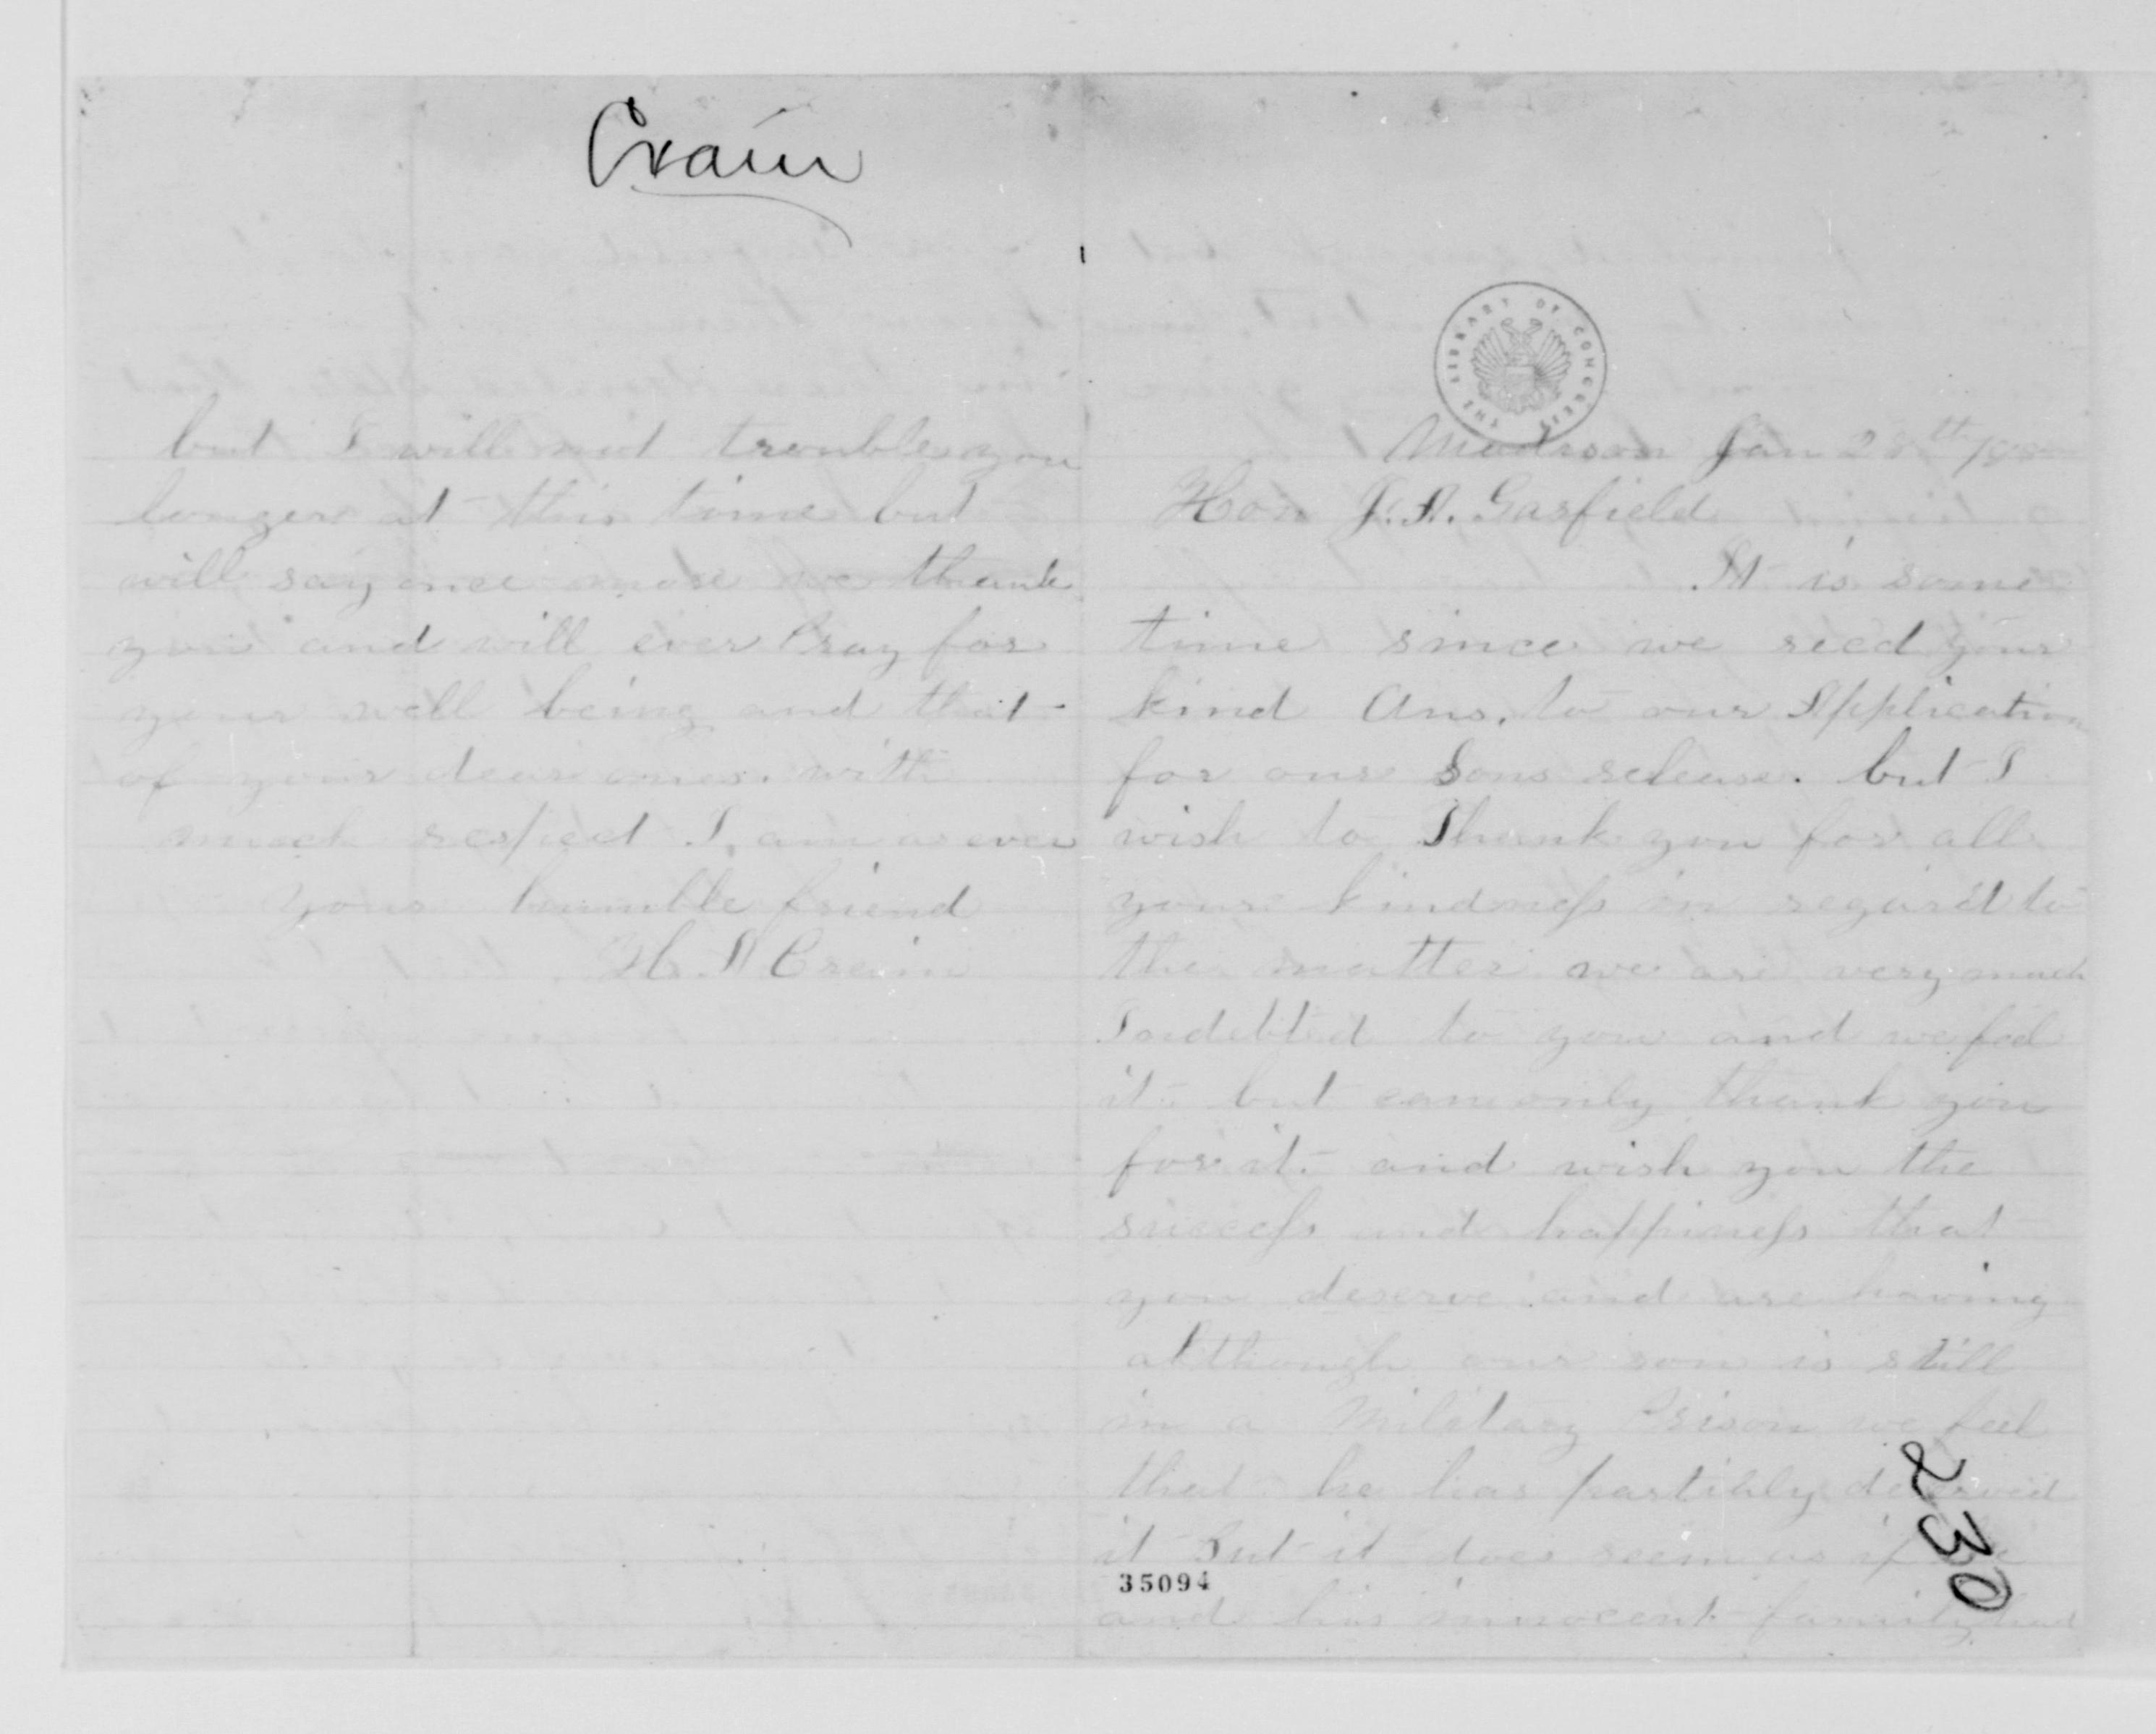 Crain
Madison Jan 28th
Hon J. A. Garfield
It is some
time since we recd your
kind Ans. to our Application
for our Sons release. but I
wish to Thank you for all
your kindness in regard to
the matter we are very much
Indebted to you and we feel
it but can only thank you
for it and wish you the
success and happiness that
you deserve and are having
although our son is still
in a Military Prison we feel
that he has partially deserved
it But it does seem as if
35094
and his innocent family had
230
but I will not trouble you
longer at this time but
will say once more we thank
you and will ever Pray for
your well being and that
of your dear ones. with
much respect I am as ever
your humble friend
H. A Crain
THE LIBRARY OF CONGRESS